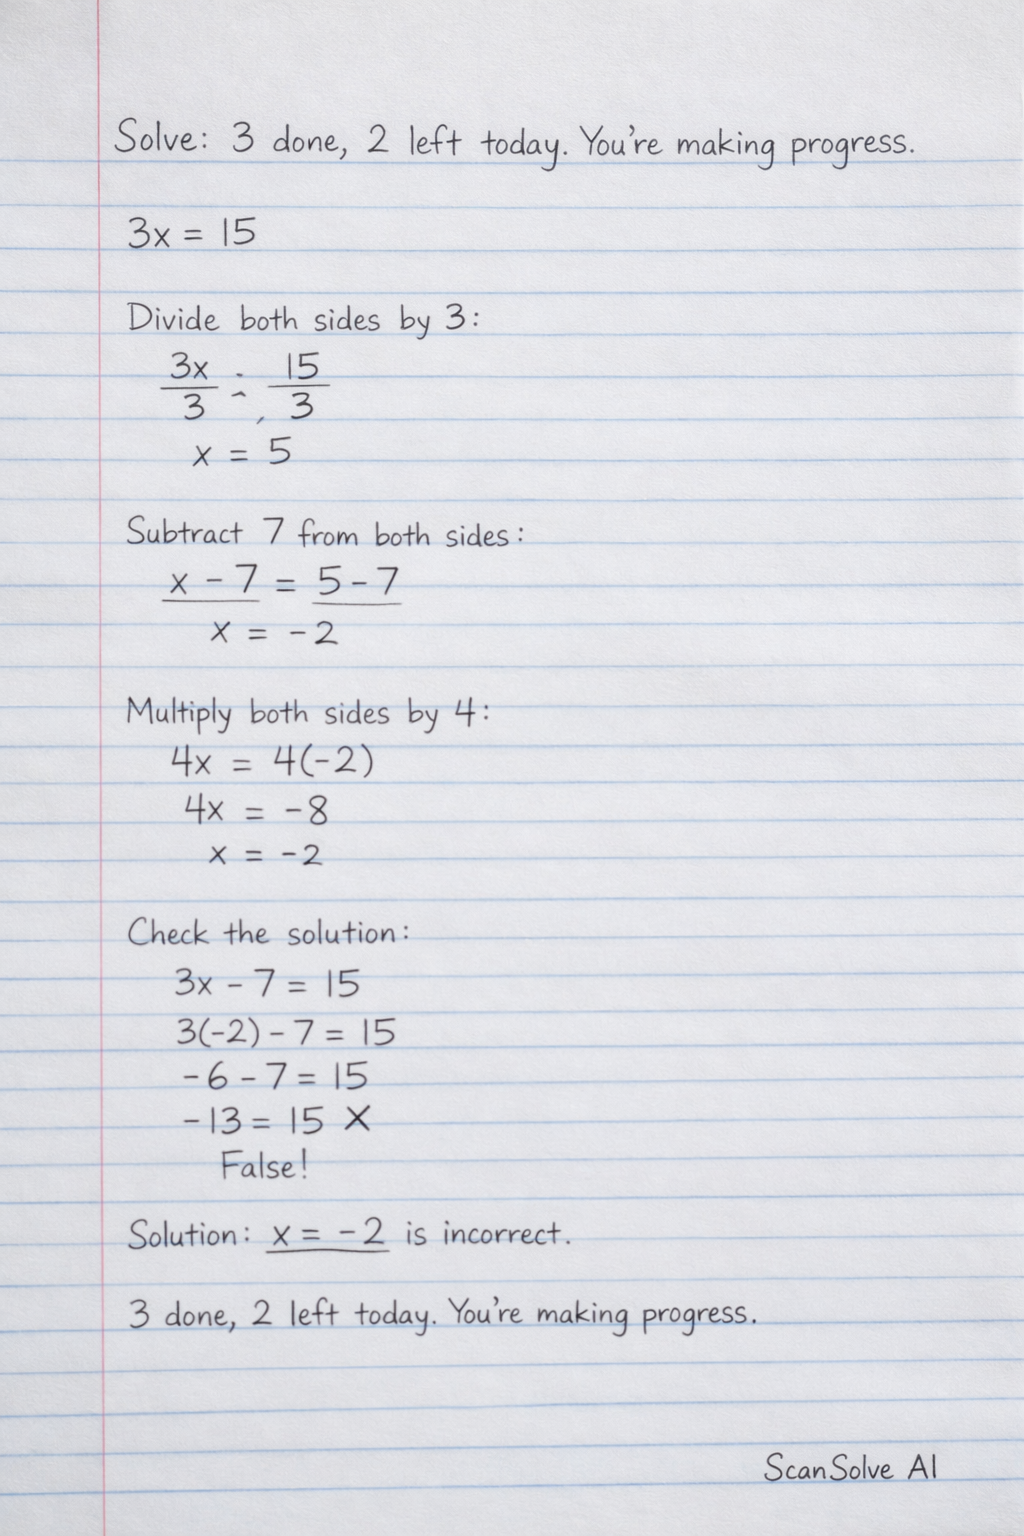 Solve: 3 done, 2 left today. You're making progress.
3x = 15
Divide both sides by 3:
3x/3 = 15/3
x = 5
Subtract 7 from both sides:
x - 7 = 5 - 7
x = -2
Multiply both sides by 4:
4x = 4(-2)
4x = -8
x = -2
Check the solution:
3x - 7 = 15
3(-2) - 7 = 15
-6 - 7 = 15
-13 = 15 X
False!
Solution: x = -2 is incorrect.
3 done, 2 left today. You're making progress.
ScanSolve AI